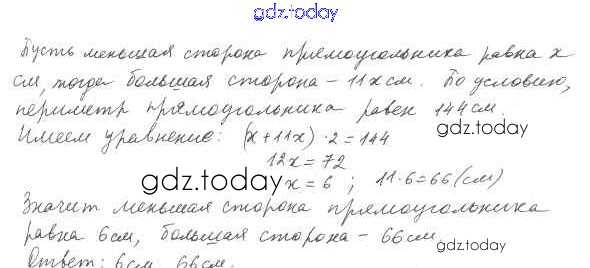 gdz.today
Пусть меньшая сторона прямоугольника равна x
см, тогда большая сторона – 11x см. По условию,
периметр прямоугольника равен 144 см.
gdz.today
Имеем уравнение: (x+11x) · 2 = 144
12x = 72
gdz.today
x = 6 ; 11·6=66 (см)
Значит меньшая сторона прямоугольника
равна 6 см, большая сторона – 66 см.
gdz.today
Ответ: 6 см, 66 см.